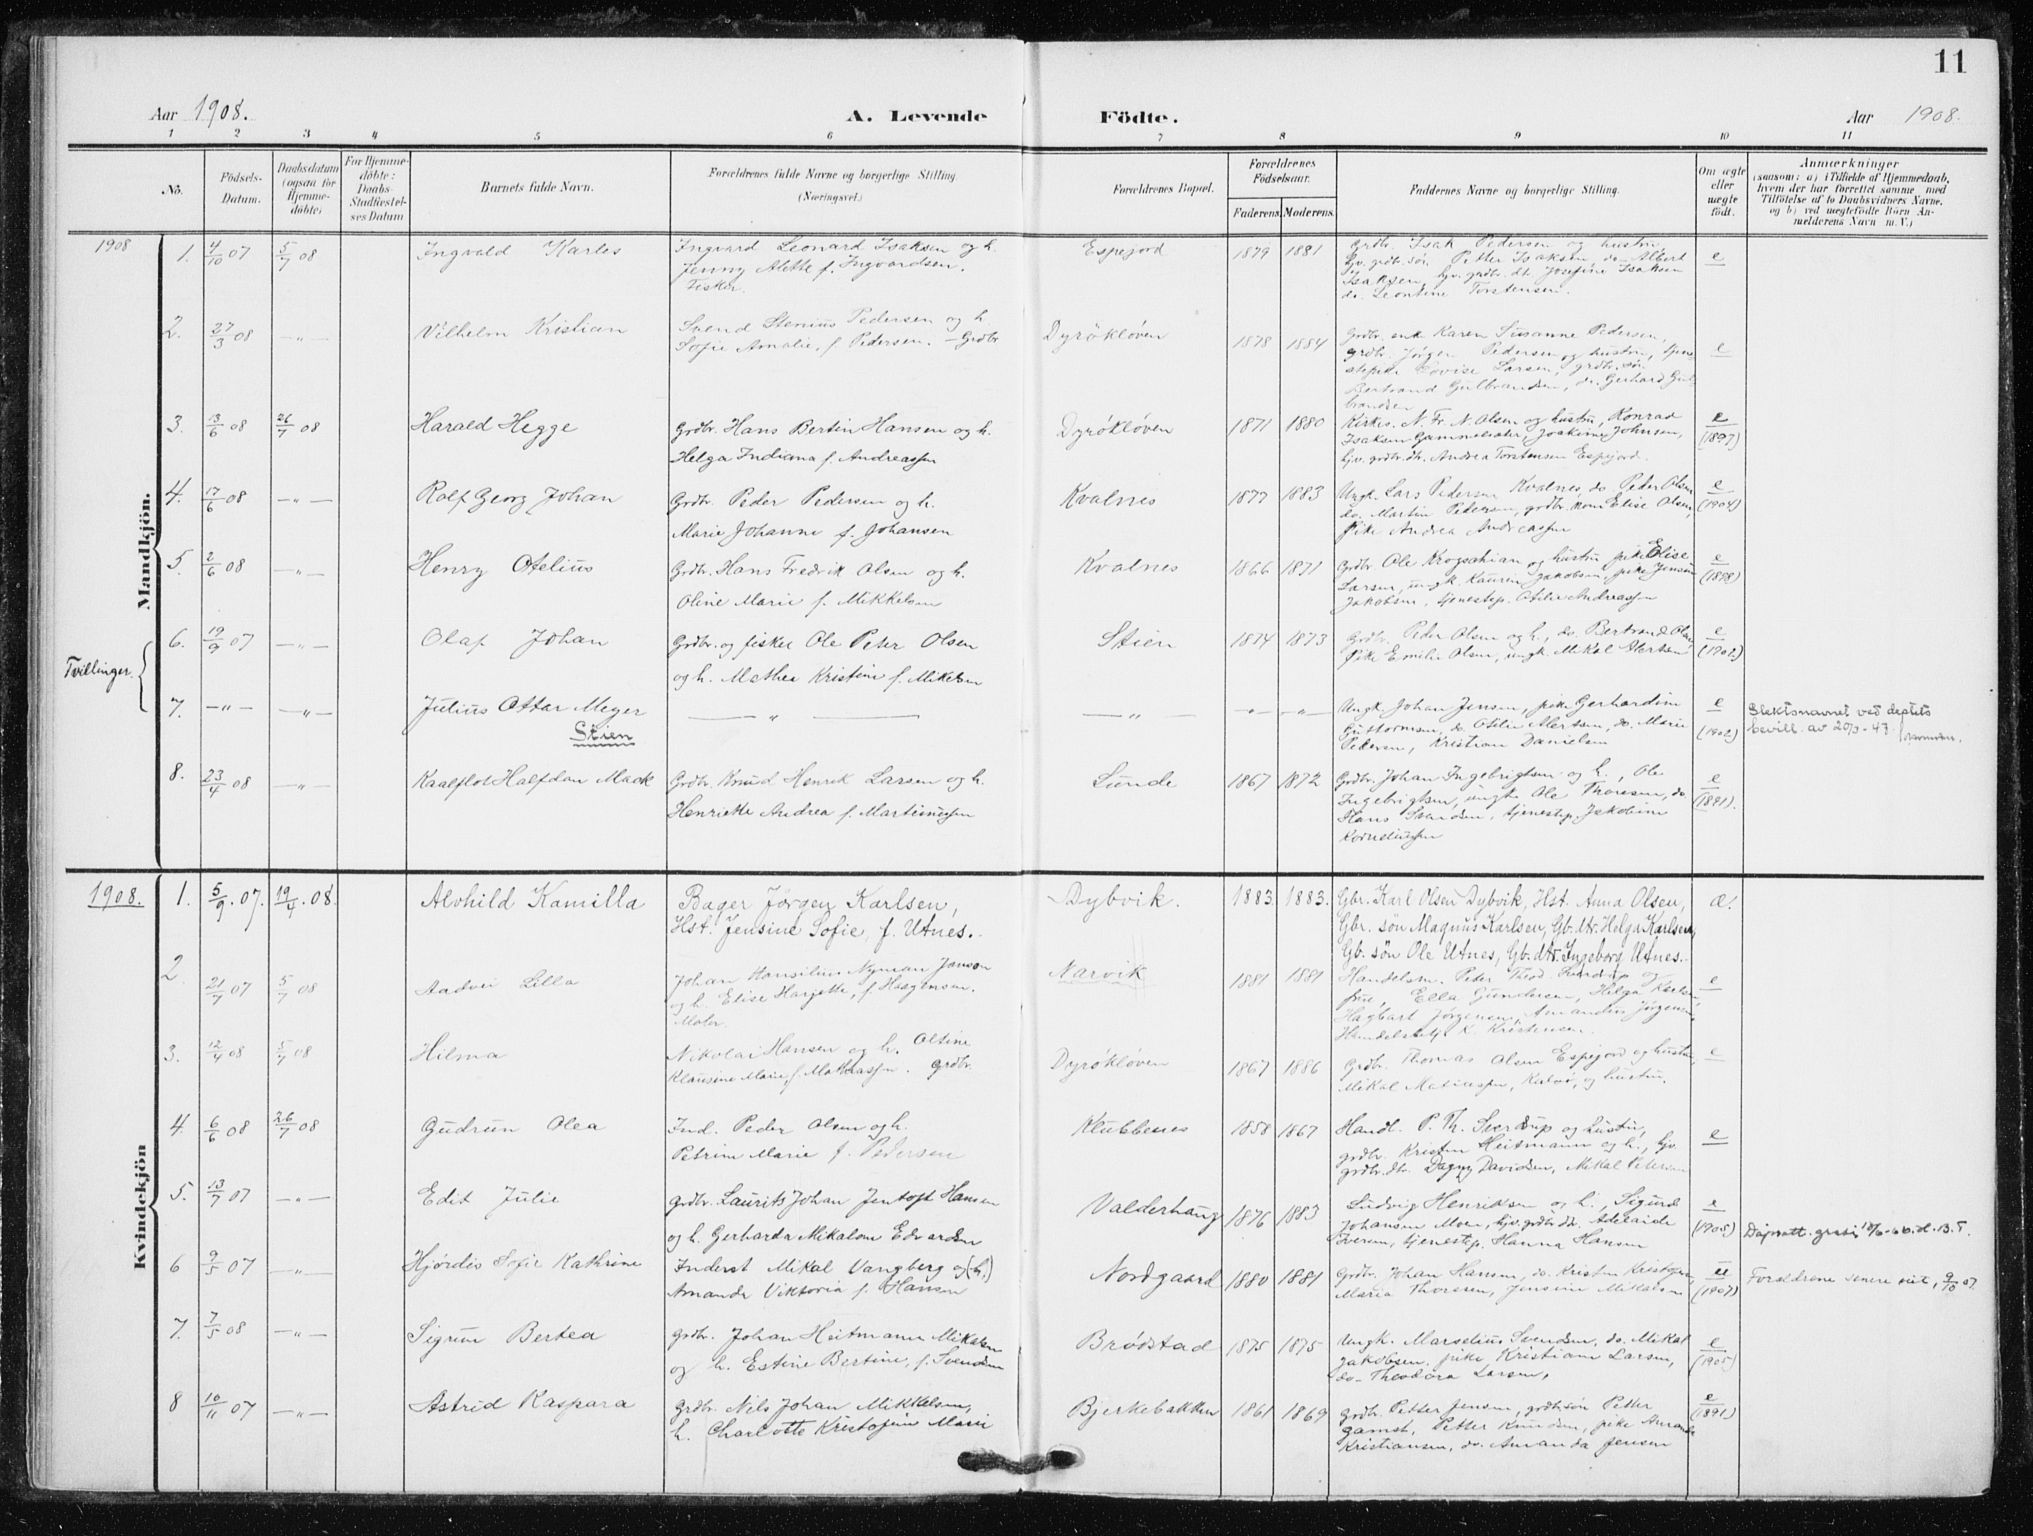 11
Aar 1908. A. Levende Födte. Aar 1908.
1 2 3 4 5 6 7 8 9 10 11
No. Födsels-Datum. Daabsdatum (ogsaa for Hjemmedöbte) For Hjemmedöbte: Daabs-Stadfæstelses Datum Barnets fulde Navn. Forældrenes fulde Navne og borgerlige Stilling. (Næringsvei.) Forældrenes Bopæl. Forældrenes Födselsaar. Faderens. Moderens. Faddernes Navne og borgerlige Stilling. Om ægte eller uægte födt. Anmærkninger (saasom: a) i Tilfælde af Hjemmedaab, hvem der har forrettet samme, med Tilföielse af to Daabsvidners Navne, og b) ved uægtefödte Börn Anmelderens Navn m. V.)
1908
Mandkjön.
1. 4/10 07 5/7 08 Ingvald Karlos Ingvard Leonard Isaksen og h. Espejord 1879 1881 Grdbr. Isak Pedersen og hustru, e
Jenny Alette f. Ingvardsen. gjv. grdbr. søn Petter Isaksen, do. Albert
Fisker. Isaksen, gjv. grdbr. dt. Josefine Isaksen
do. Leontine Torstensen.
2. 27/3 08 -"- Vilhelm Kristian Svend Stenius Pedersen og h. Dyrökløven 1878 1884 Grdbr. enke Karen Susanne Pedersen, e
Sofie Amalie, f. Pedersen. - Grdbr grdbr. Jørgen Pedersen og hustru, tjene
stepike Lovise Larsen, grdbr. søn
Bertrand Gulbrandsen, do. Gerhard Gul-
brandsen
3. 13/6 08 26/7 08 Harald Hegge Grdbr. Hans Bertin Hansen og h. Dyrökløven 1871 1880 Kirkes. N. Fr. N. Olsen og hustru, Konrad e
Helga Indiana f. Andreassen Isaksen Gammelsæter, Joakime Johnsen, (1897)
gjv. grdbr. dtr. Andrea Torstensen Espejord.
4. 17/6 08 -"- Rolf Georg Johan Grdbr. Peder Pedersen og h. Kvalnes 1877 1883 Ungk. Lars Pedersen Kvalnes, do. Peder Olsen e
Marie Johanne f. Johansen do. Martin Pedersen, grdbr. kone Elise Olsen, (1904)
pike Andrea Andreassen
5. 2/6 08 -"- Henry Otelius Grdbr. Hans Fredrik Olsen og h. Kvalnes 1866 1871 Grdbr. Ole Krogsæhian og hustru, pike Elise e
Oline Marie f. Mikkelsen Larsen, ungk. Kaurin Jakobsen, pike Jensine (1898)
Jakobsen, tjenestep. Otilie Andreassen
Tvillinger.
6. 19/9 07 -"- Olaf Johan Grdbr. og fisker Ole Peter Olsen Stien 1874 1873 Grdbr. Peder Olsen og h., do. Bertrand Olsen e
og h. Mathea Kristine f. Mikelsen pike Emilie Olsen, ungk. Mikal Alertsen (1902)
7. -"- -"- Julius Ottar Meyer -"- -"- -"- -"- Ungk. Johan Jensen, pike Gerhardine e Slektsnavnet ved deptets
Stien Guttormsen, do. Otilie Alertsen, do. Marie (1902) bevill. av 20/3-47.
Pedersen, Kristian Danielsen
8. 23/4 08 -"- Kaalflot Halfdan Mack Grdbr. Knud Henrik Larsen og h. Lunde 1867 1872 Grdbr. Johan Ingebrigtsen og h., Ole e
Henriette Andrea f. Martinussen Ingebrigtsen, ungk. Ole Thoresen, do (1891).
Hans Svendsen, tjenestep. Jakobine
Korneliussen
1908.
Kvindekjön
1. 5/9. 07. 19/4. 08. Alvhild Kamilla Bager Jørgen Karlsen, Dybvik. 1883 1883. Gbr. Karl Olsen Dybvik, Hst. Anna Olsen, æ.
Hst. Jensine Sofie, f. Utnes. Gbr. søn Magnus Karlsen, Gb. dtr. Helga Karlsen,
Gb. søn Ole Utnes, Gb. dtr. Ingeborg Utnes.
2 21/7 07 5/7 08 Aadvei Lilla Johan Hansilius Nyman Janson Narvik 1881 1881 Handelsm. Peter Thod. Sverdrup og e
og h. Elise Harjette, f. frue, Ella Gundersen, Helga Karlsen,
Maler. Hagbart Jørgensen, Amandus Jørgensen,
K. Kristensen.
3. 12/4 08 5/7 08 Hilma Nikolai Hansen og h. Oltine Dyrökløven 1867 1886 Grdbr. Thomas Olsen Espejord og hustru, e
Klausine Marie, f. Mathiassen. Grdbr. Mikal Matiassen, og hustru.
4. 6/6 08 26/7 08 Gudrun Olea Ind. Peder Olsen og h. Klubbenes 1858 1867 Handl. P. Th. Sverdrup og hustru, e
Petrine Marie f. Pedersen grdbr. Kristen Heitmann og h., gjv.
grdbr. dtr. Dagny Davidsen, Mikal Petersen
5. 13/7 07 -"- Edit Julie Grdbr. Laurits Johan Jentoft Hansen Valderhaug 1876 1883 Ludvig Henriksen og h., Sigurd e
og h. Gerharda Mikalsen Edvardsen Johansen Moen, gjv. grdbr. dtr. Adelaide (1905)
Iversen, tjenestep. Hanna Hansen
6 9/5 07 -"- Hjørdis Sofie Kathrine Inderst Mikal Vangberg og (h.) Nordgaard 1880 1881 Grdbr. Johan Hansen, do. Kristen Kristofersen, ue Forældrene senere viet, 9/10 07.
Amanda Viktoria f. Hansen Maria Thoresen, Jensine Mikalsen (1907)
7. 7/5 08 -"- Sigrun Bertea Grdbr. Johan Heitmann Mikalsen Brödstad 1875 1875 Ungk. Marselius Svendsen, do. Mikal e
og h. Estine Bertine, f. Svendsen Jakobsen, pike Kristiane Larsen, (1905)
do. Theodora Larsen,
8 10/11 07 -"- Astrid Kaspara Grdbr. Nils Johan Mikkelsen, Bjerkebakken 1861 1869 Grdbr. Petter Jensen, grdbr. søn Petter e
h. Charlotte Kristofine Marie Gamst, Petter Knudsen, pike Amanda (1891)
Kristiansen, do. Amanda Jensen